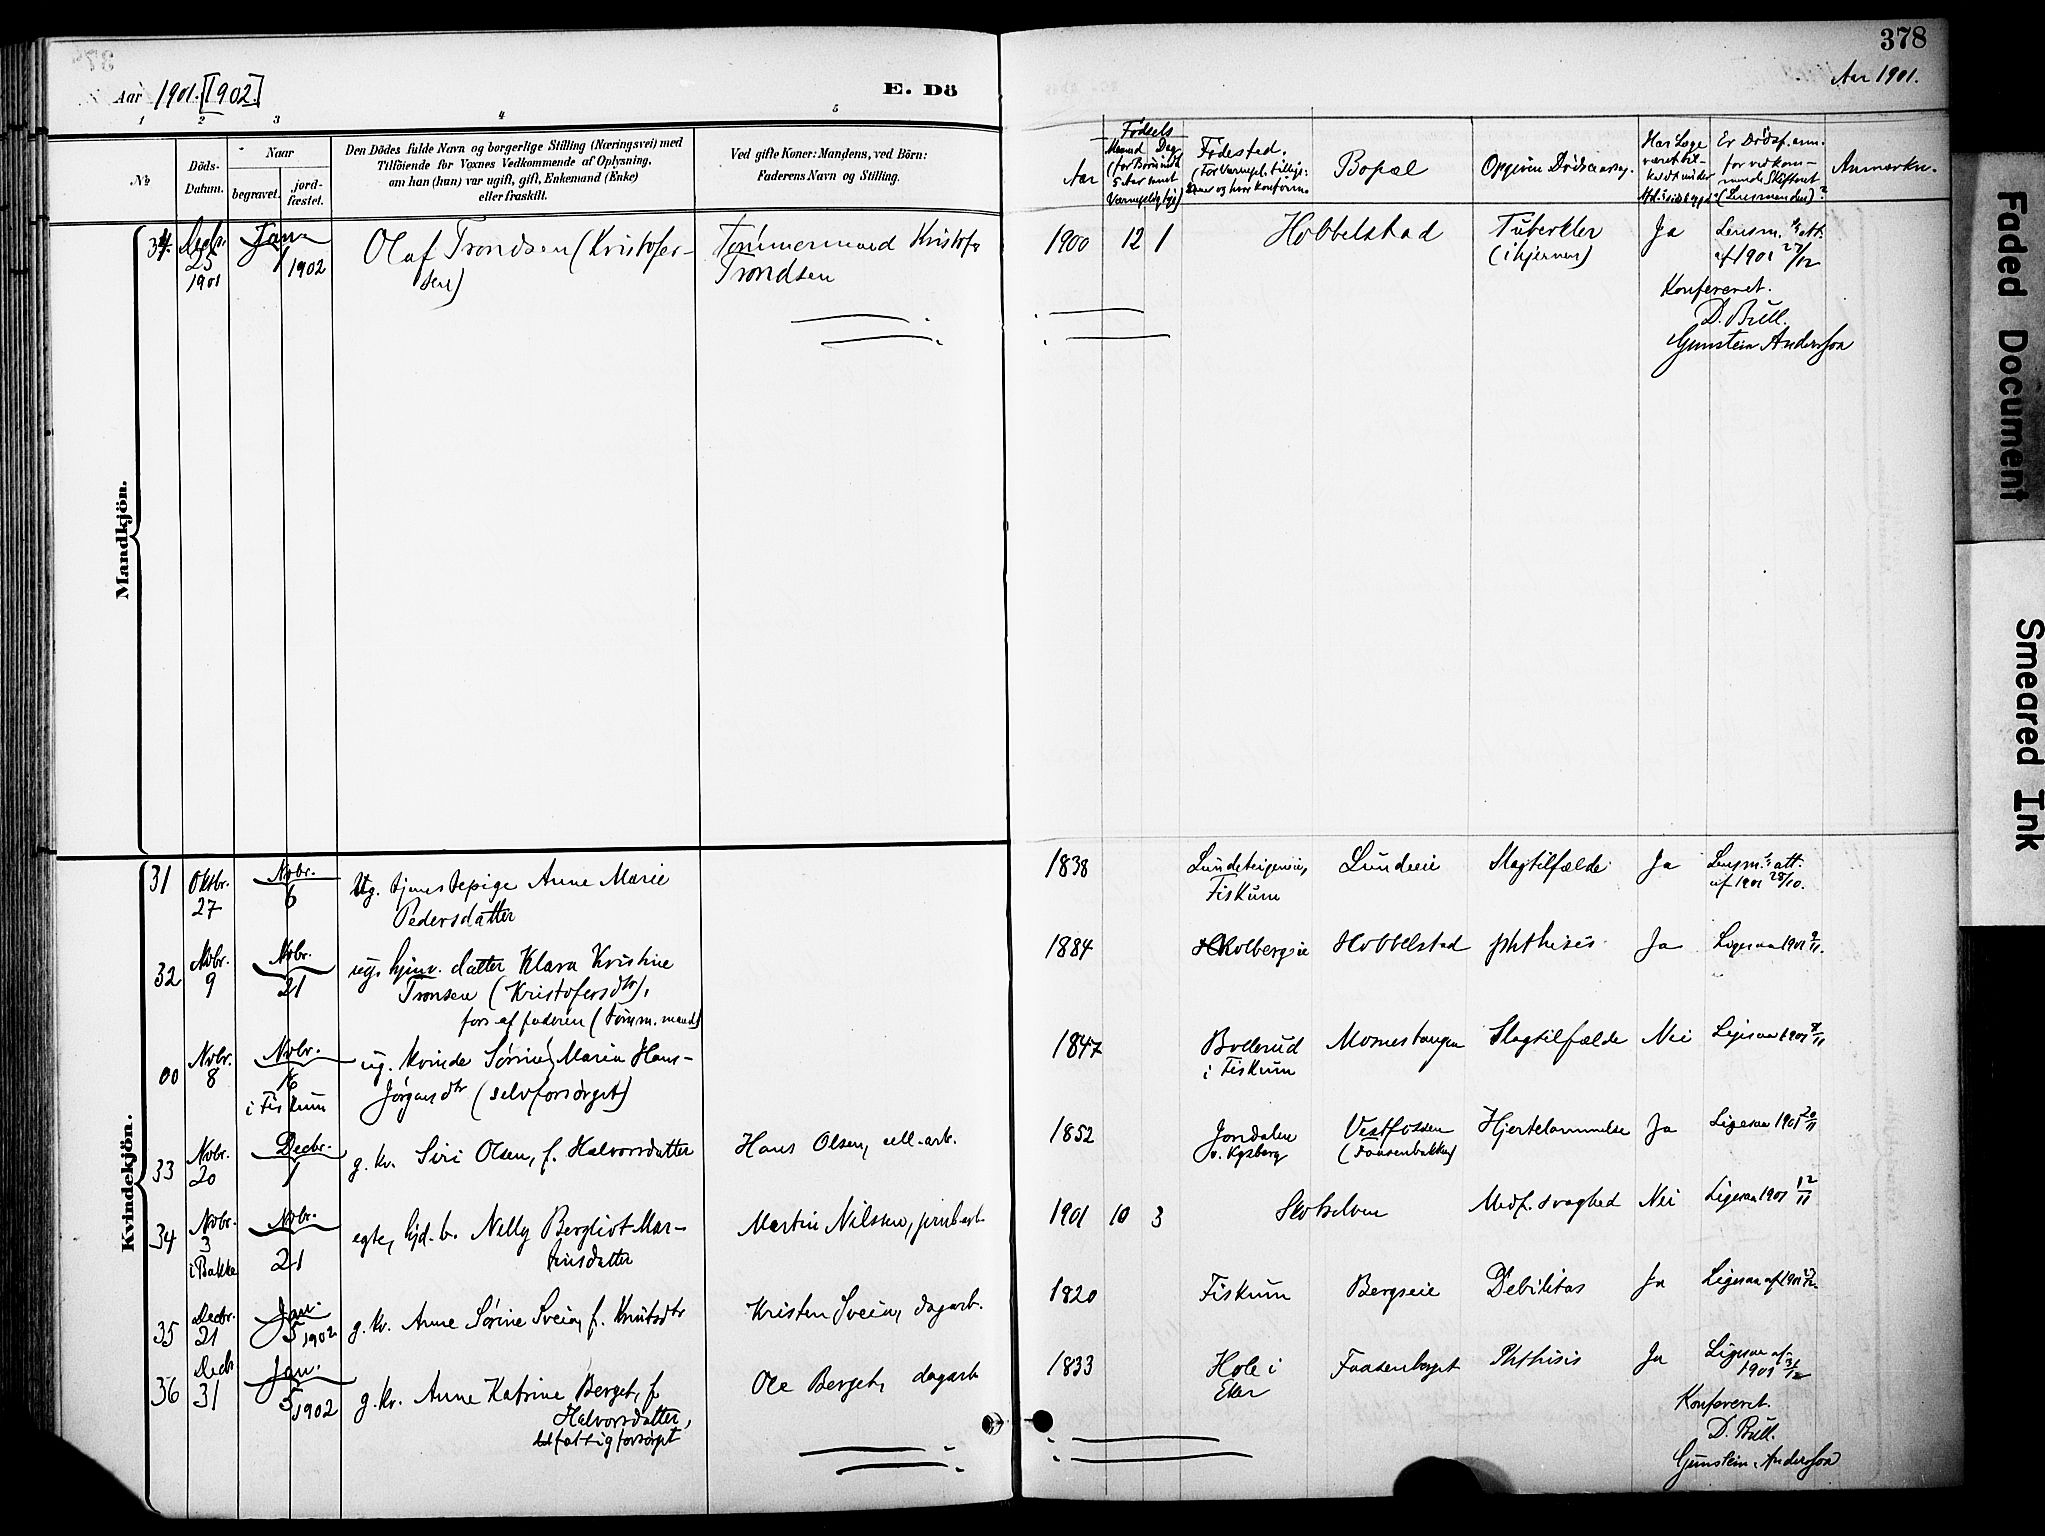 378
Aar 1901. [1902.]
E. Dö
Aar 1901.
1 2 3 4 5
№
Döds-
Datum.
Naar
begravet.
jord-
fæstet.
Den Dödes fulde Navn og borgerlige Stilling (Næringsvei) med
Tilföiende for Voxnes Vedkommende af Oplysning,
om han (hun) var ugift, gift, Enkemand (Enke)
eller fraskilt.
Ved gifte Koner: Mandens, ved Börn:
Faderens Navn og Stilling.
Fødsels
Aar
Maaned Dag
(for Børn indt.
5 Aar samt
Værnepligtige)
Fødested.
Bopæl
Opgiven Dødsaarsag.
Har Læge
været til-
Er Dödsf. anm.
for vedkom-
mende Skifteret
(Lensmanden)?
Anmærkn.
Mandkjön.
34 Decbr. 25 1901 Jan. 1 1902 Olaf Trondsen (Kristofer-
sen)
Tømmermand Kristofer
Trondsen
1900 12 1 Hobbelstad Tuberkler
(i hjernen)
Ja Lensm.'s att.
af 1901 27/12
Konfereret.
D. Bull.
Gunstein Andersson
Kvindekjön.
31 Oktbr. 27 Novbr. 6 Ug. tjenestepige Anne Marie
Pedersdatter
1838 Lundeteigeneie,
Fiskum
Lundeeie Slagtilfælde Ja Lensm.'s att.
af 1901 28/10.
32 Novbr. 9 Novbr. 21 ug. hjmv. datter Klara Kristine
Tronsen (Kristofersdtr),
fors. af faderen (tømm.mand)
1884 Kolbergseie Hobbelstad phthisis Ja Ligesaa 1901 9/11.
00 Novbr. 8 Novbr. 16
i Fiskum
ug. kvinde Sørine Maria Hans-
Jørgensdtr (selvforsørget)
1847 Bollerud
i Fiskum
Mosnestangen Slagtilfælde Nei Ligesaa 1901 8/11
33 Novbr. 20 Decbr. 1 g. kv. Siri Olsen, f. Halvorsdatter Hans Olsen, cell.-arb.
1852 Jondalen
v. Kgsberg
Vestfossen
(Faasenbakken)
Hjertelammelse Ja Ligesaa 1901 20/11
34 Novbr. 3
i Bakke
Novbr. 21 egte, hjd. b. Nelly Bergliot Mar-
tinsdatter
Martin Nilsen, jernb.arb.
1901 10 3 Skotselven Medf. svaghed Nei Ligesaa 1901 12/11
35 Decbr. 21 Jan. 5 1902 g. kv. Anne Sørine Sveia, f. Knutsdtr Kristen Sveia, dagarb.
1820 Fiskum Bergseie Debilitas Ja Ligesaa af 1901
36 Decbr 31 Jan. 5 1902 g. kv. Anne Katrine Berget, f.
Halvorsdatter,
fattigforsørget
Ole Berget, dagarb.
1833 Hole i
Eker
Faasenberget Phthisis Ja Ligesaa af
1901 31/12
Konfereret.
D. Bull.
Gunstein Andersson
Faded Document
Smeared Ink